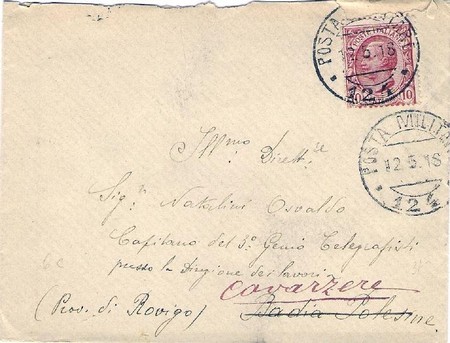 POSTA MILITARE
12.5.16
124
10 10
POSTA MILITA
12.5.16
124
Ill.mo Dirett.re
Sig.r Natalini Osvaldo
Capitano del 3º Genio Telegrafisti
presso la Direzione dei lavori
Cavarzere
(Prov. di Rovigo) Badia Polesine